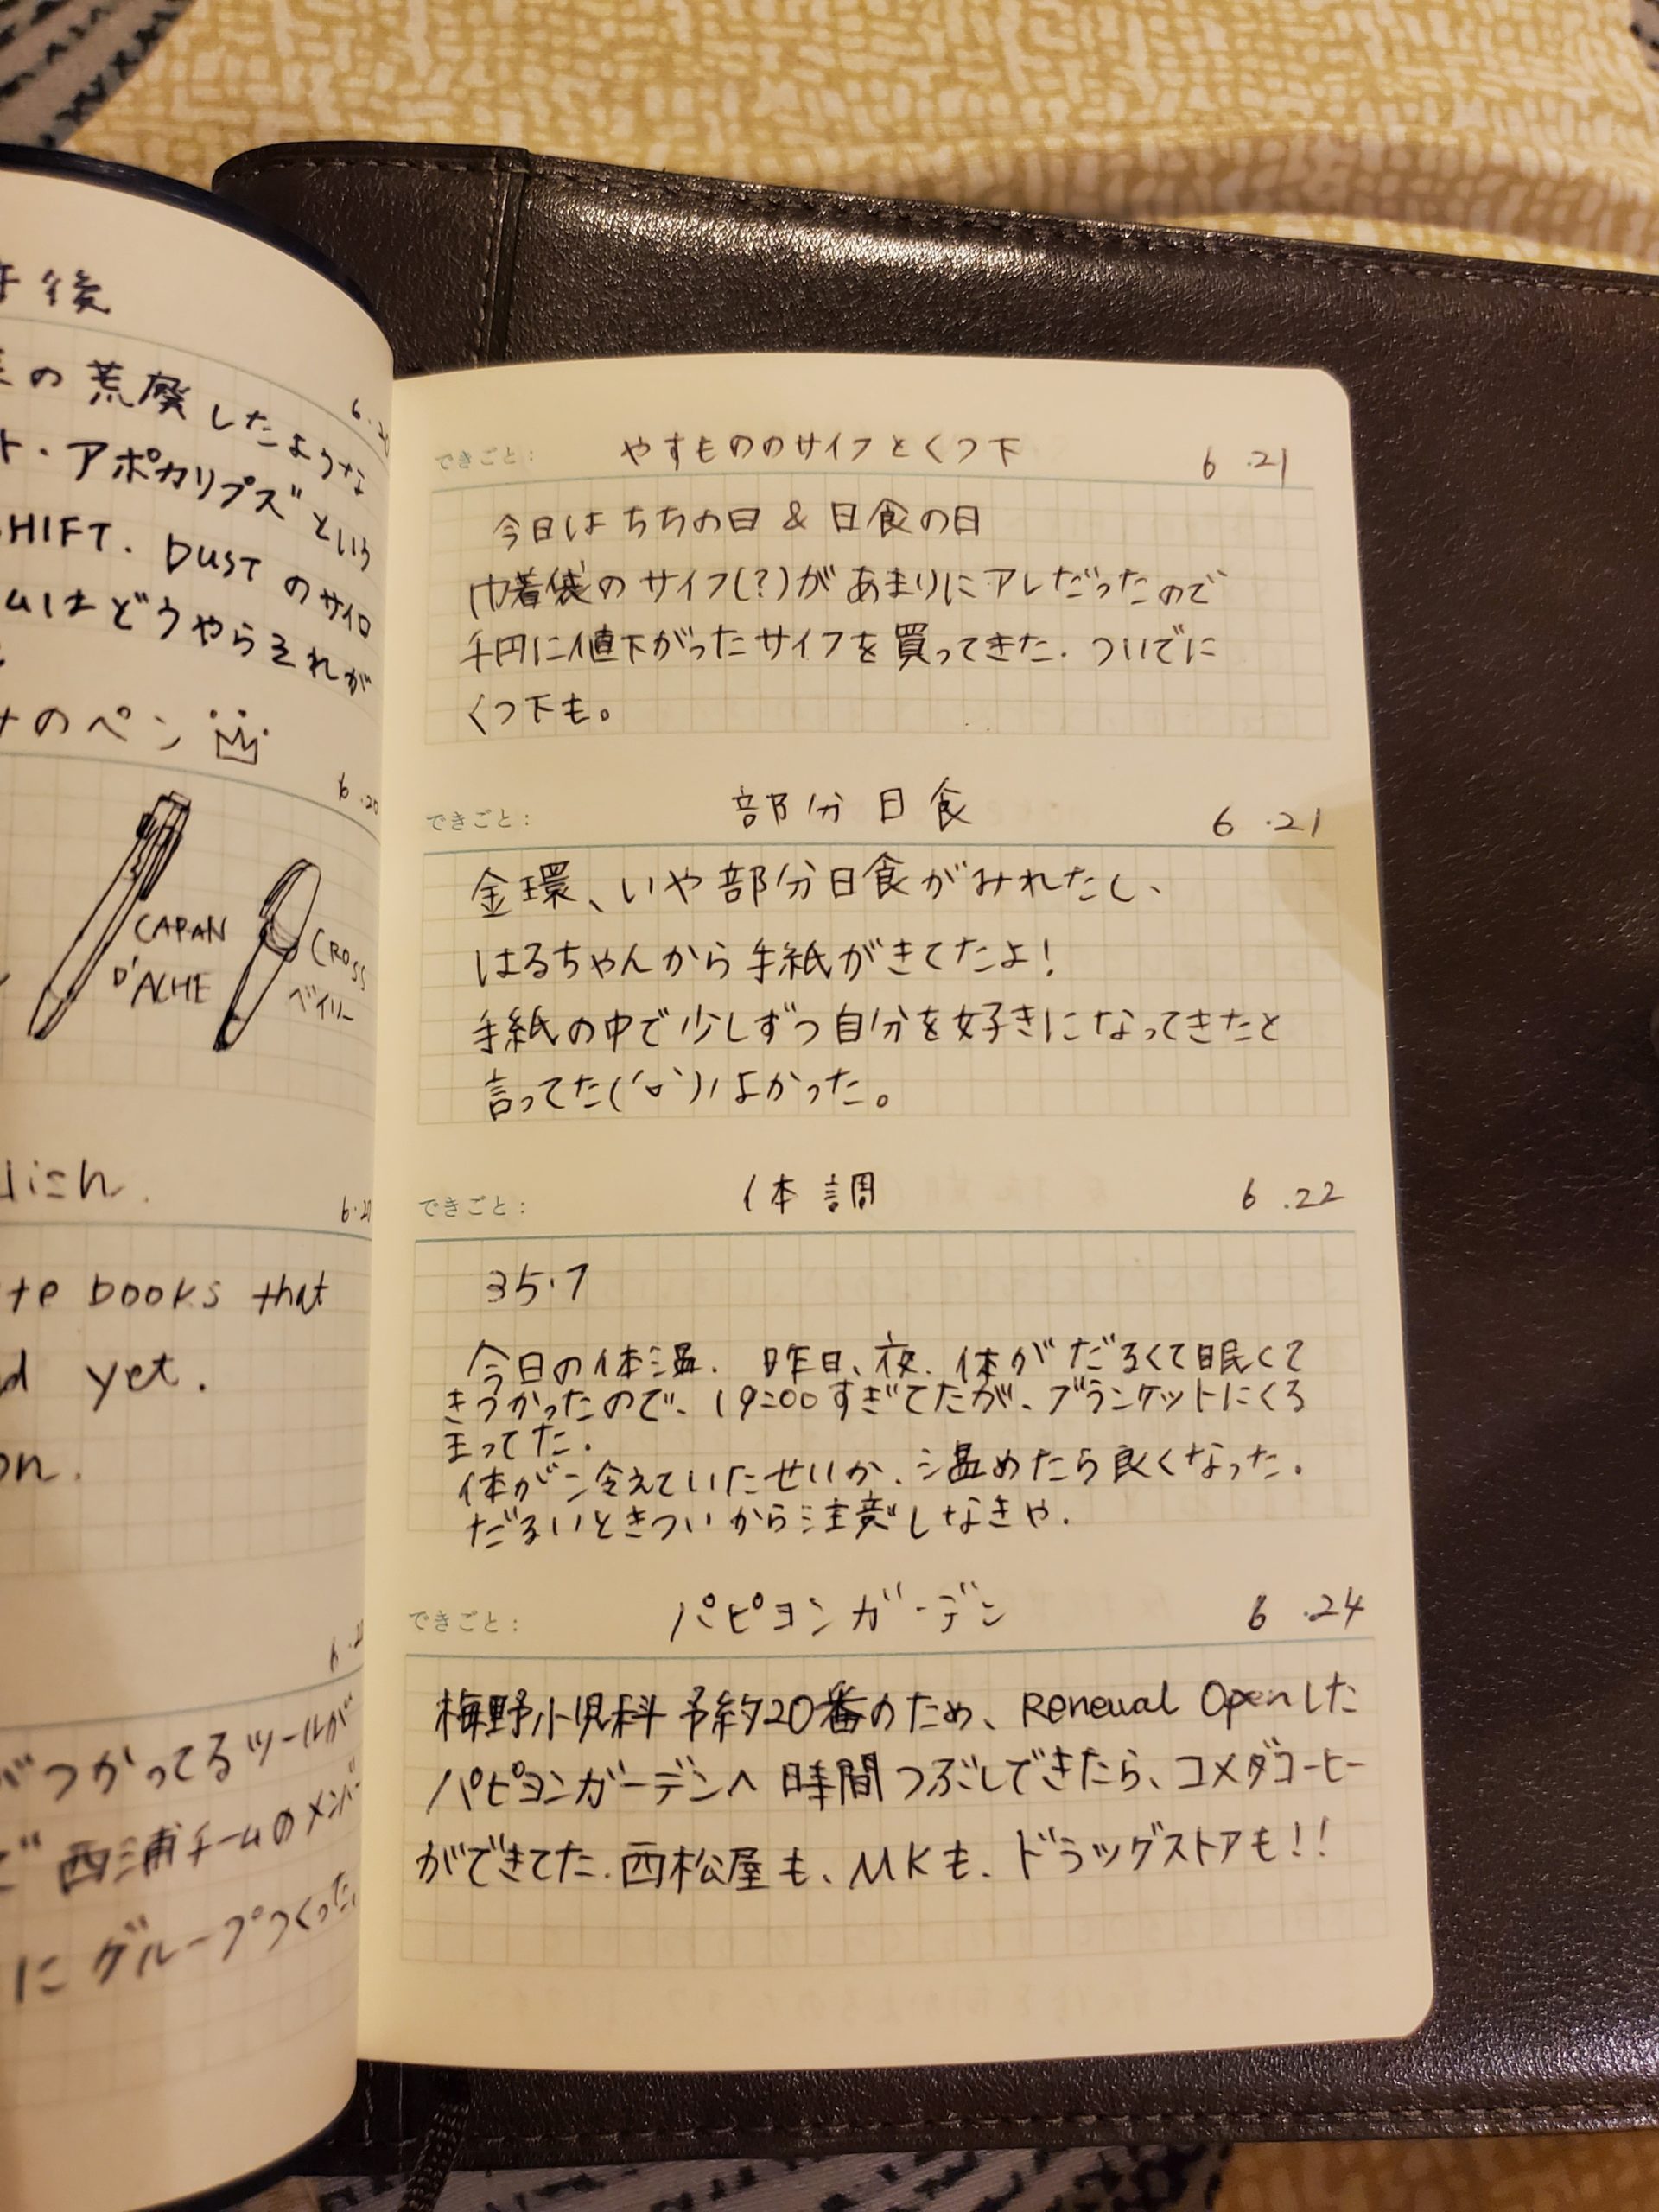 後
の荒廃したような
6.20
ト・アポカリプズという
SHIFT. DUSTのサイロ
ムはどうやらそれが
のペン
6.20
CARAN
D'ACHE
CROSS
ベイリー
6.20
books that
yet.
がつかってるツールが
西浦チームのメンバー
にグループつくった。
できごと: やすもののサイフとくつ下 6.21
今日はちちの日 & 日食の日
巾着袋のサイフ(?)があまりにアレだったので
千円に値下がったサイフを買ってきた. ついでに
くつ下も。
できごと: 部分日食 6.21
金環、いや部分日食がみれたし、
はるちゃんから手紙がきてたよ!
手紙の中で少しずつ自分を好きになってきたと
言ってた(´o`)ﾉよかった。
できごと: 体調 6.22
35.7
今日の体温. 昨日、夜. 体がだるくて眠くて
きつかったので、19:00すぎてたが、ブランケットにくる
まってた.
体が冷えていたせいか、温めたら良くなった.
だるいときついから注意しなきゃ.
できごと: パピヨンガーデン 6.24
梅野小児科 予約20番のため、Renewal Openした
パピヨンガーデンへ 時間つぶしできたら、コメダコーヒー
ができてた. 西松屋も、MKも、ドラッグストアも!!